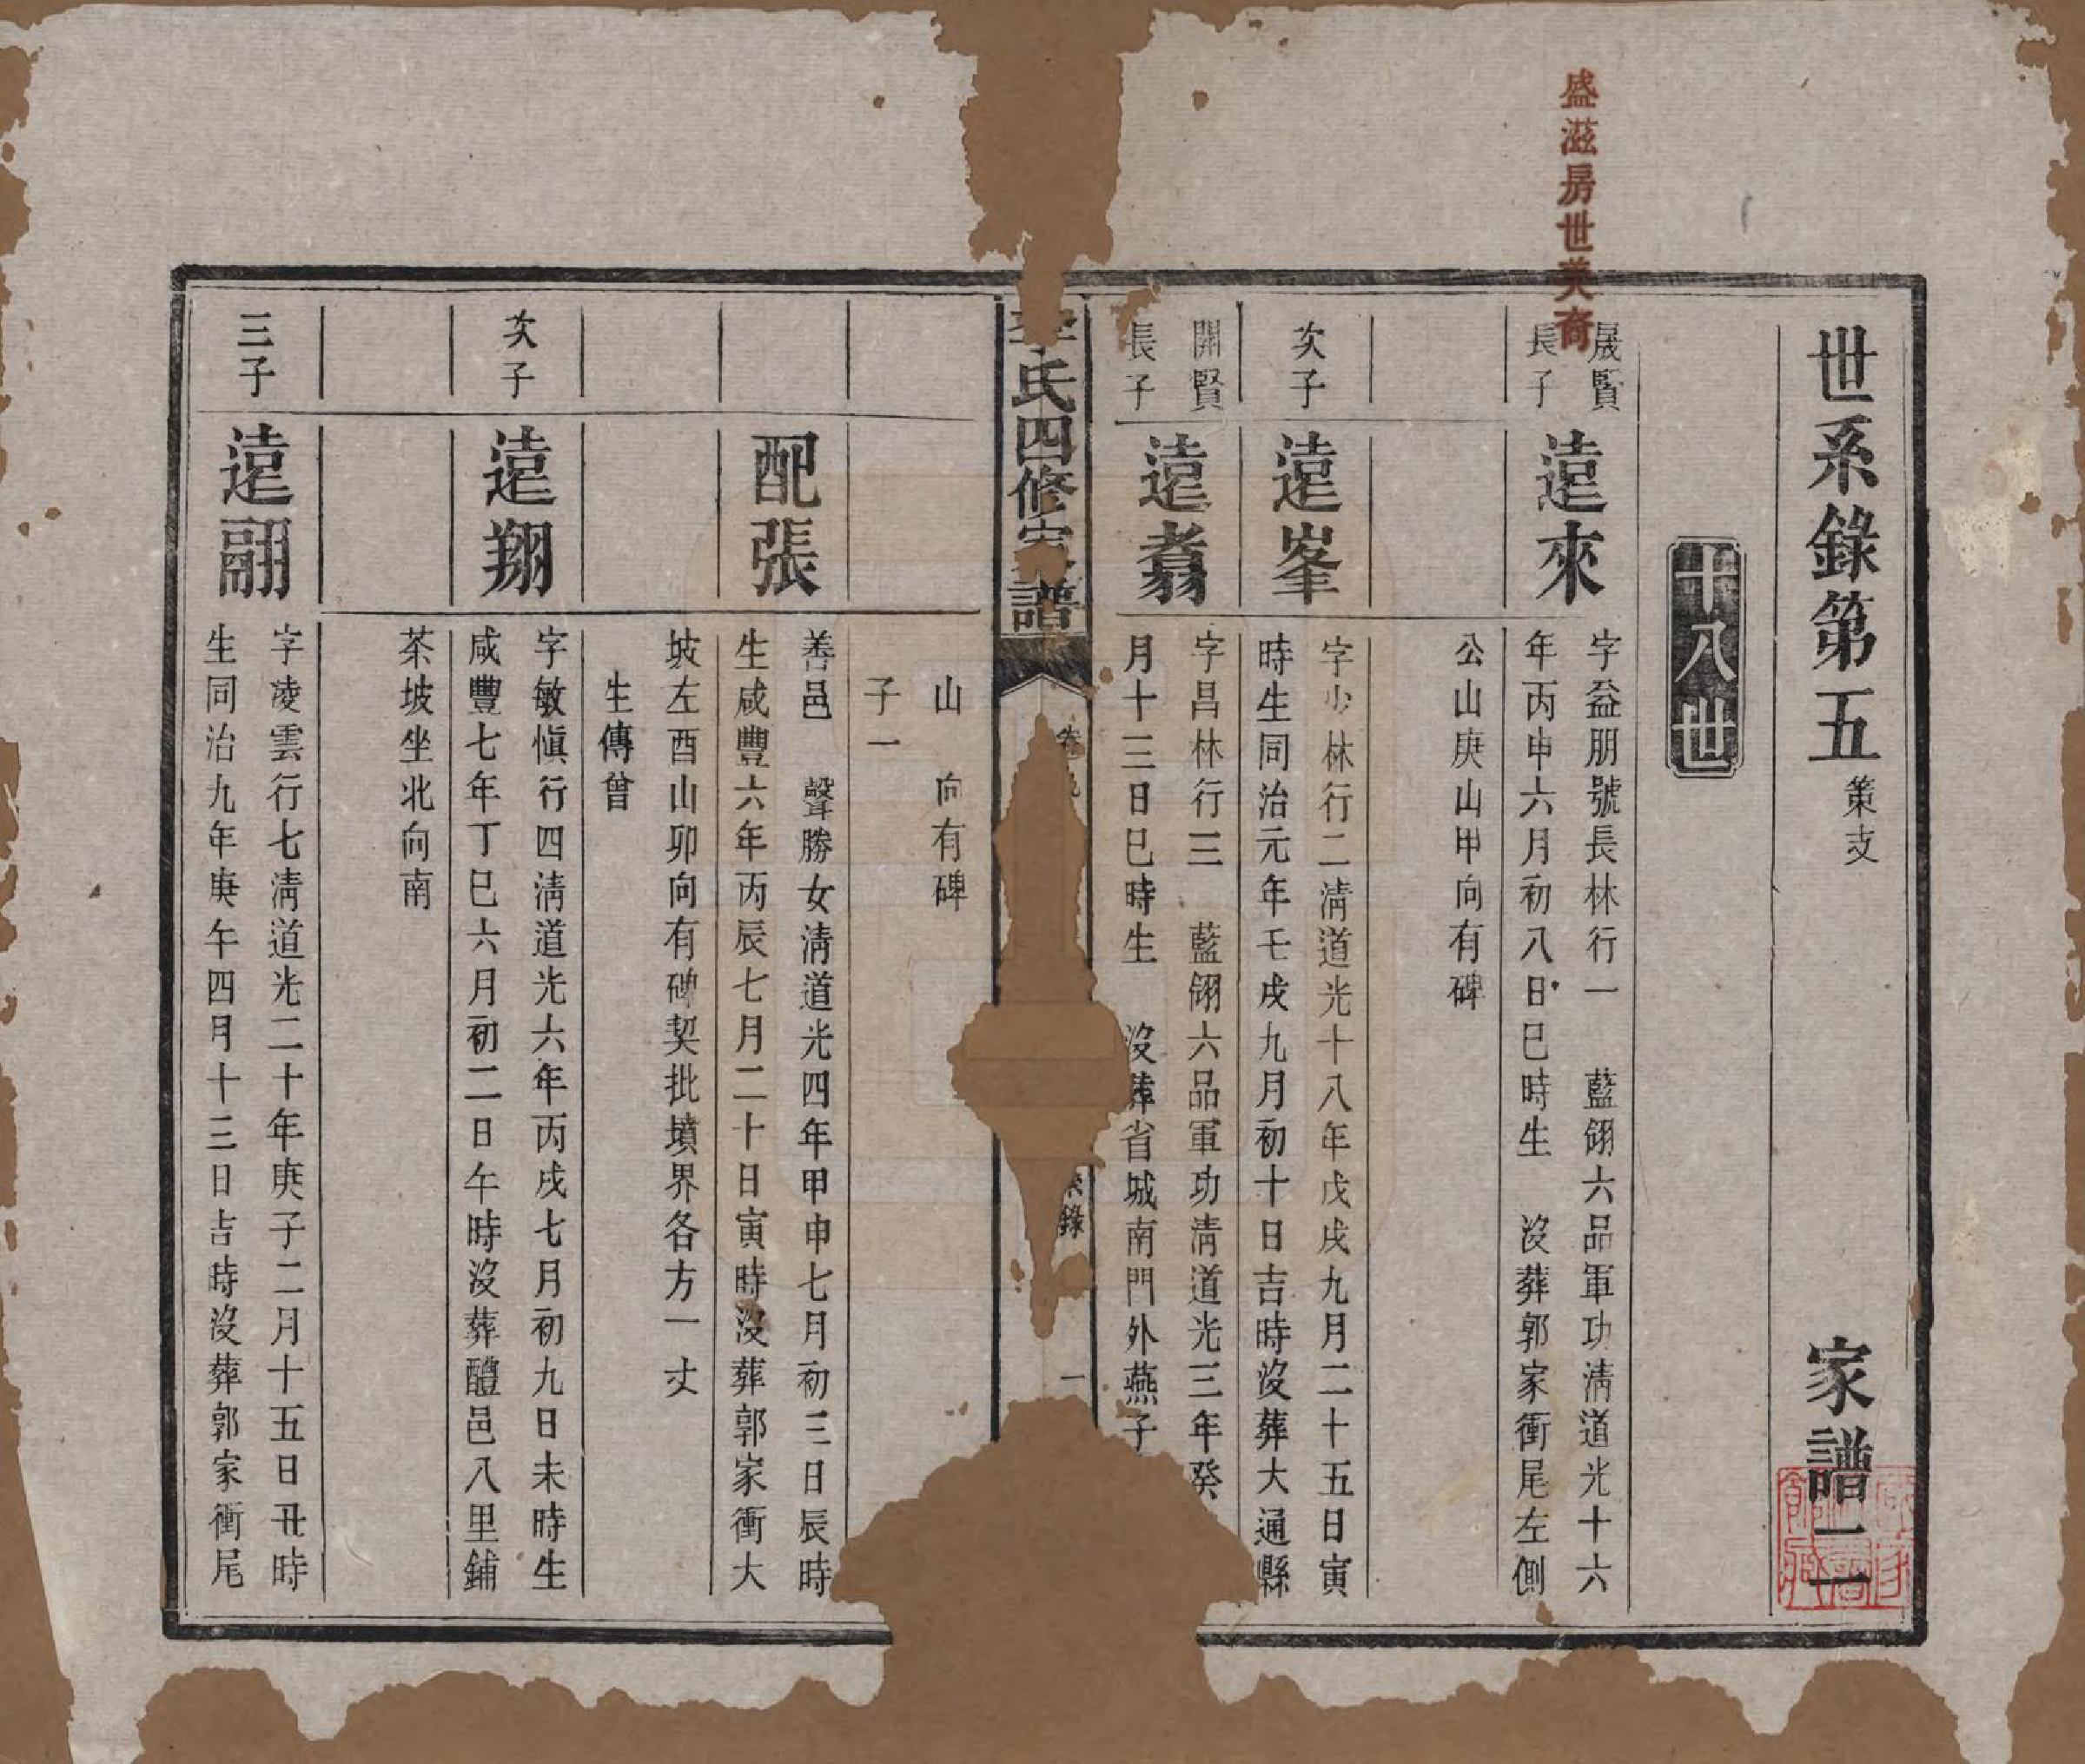 盛滋房世美裔
世系錄第五
策支
家譜二一
十八世
晟賢
長子
遠來
字益朋號長林行一 藍翎六品軍功清道光十六
年丙申六月初八日巳時生 沒葬郭家衝尾左側
公山庚山甲向有碑
次子
遠峯
字少林行二清道光十八年戊戌九月二十五日寅
時生同治元年壬戌九月初十日吉時沒葬大通縣
開賢
長子
遠翥
字昌林行三 藍翎六品軍功清道光三年癸
月十三日巳時生 沒葬省城南門外燕子
李氏四修家譜
系錄
一
山 向有碑
子一
配張
善邑 聲勝女清道光四年甲申七月初三日辰時
生咸豐六年丙辰七月二十日寅時沒葬郭家衝大
坡左酉山卯向有碑契批墳界各方一丈
生傳曾
次子
遠翔
字敏慎行四清道光六年丙戌七月初九日未時生
咸豐七年丁巳六月初二日午時沒葬醴邑八里鋪
茶坡坐北向南
三子
遠翮
字凌雲行七清道光二十年庚子二月十五日丑時
生同治九年庚午四月十三日吉時沒葬郭家衝尾